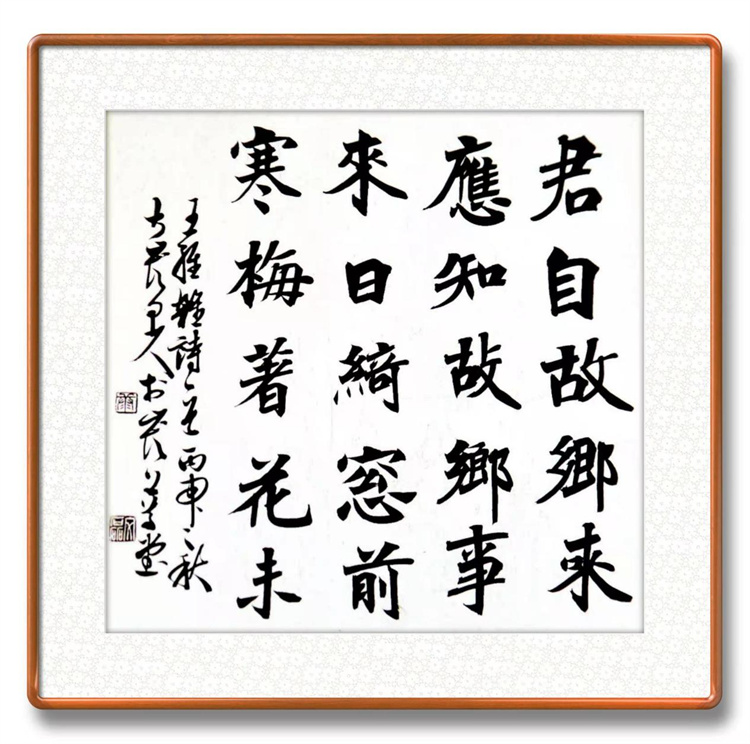 君自故鄉來
應知故鄉事
來日綺窓前
寒梅著花未
王維雜詩一首丙申之秋